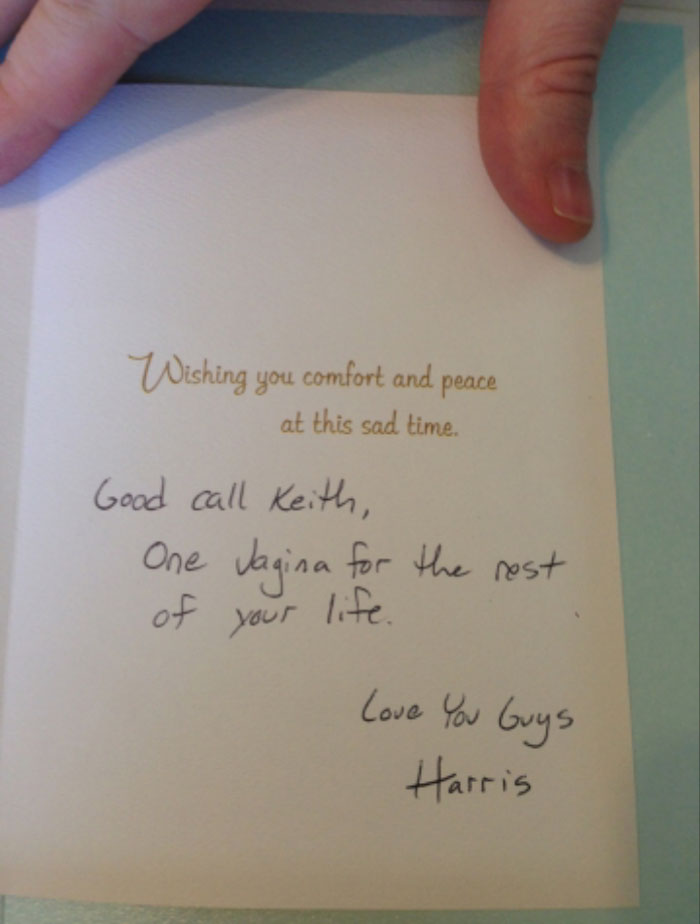 Wishing you comfort and peace
at this sad time.
Good call Keith,
One vagina for the rest
of your life.
Love You Guys
Harris